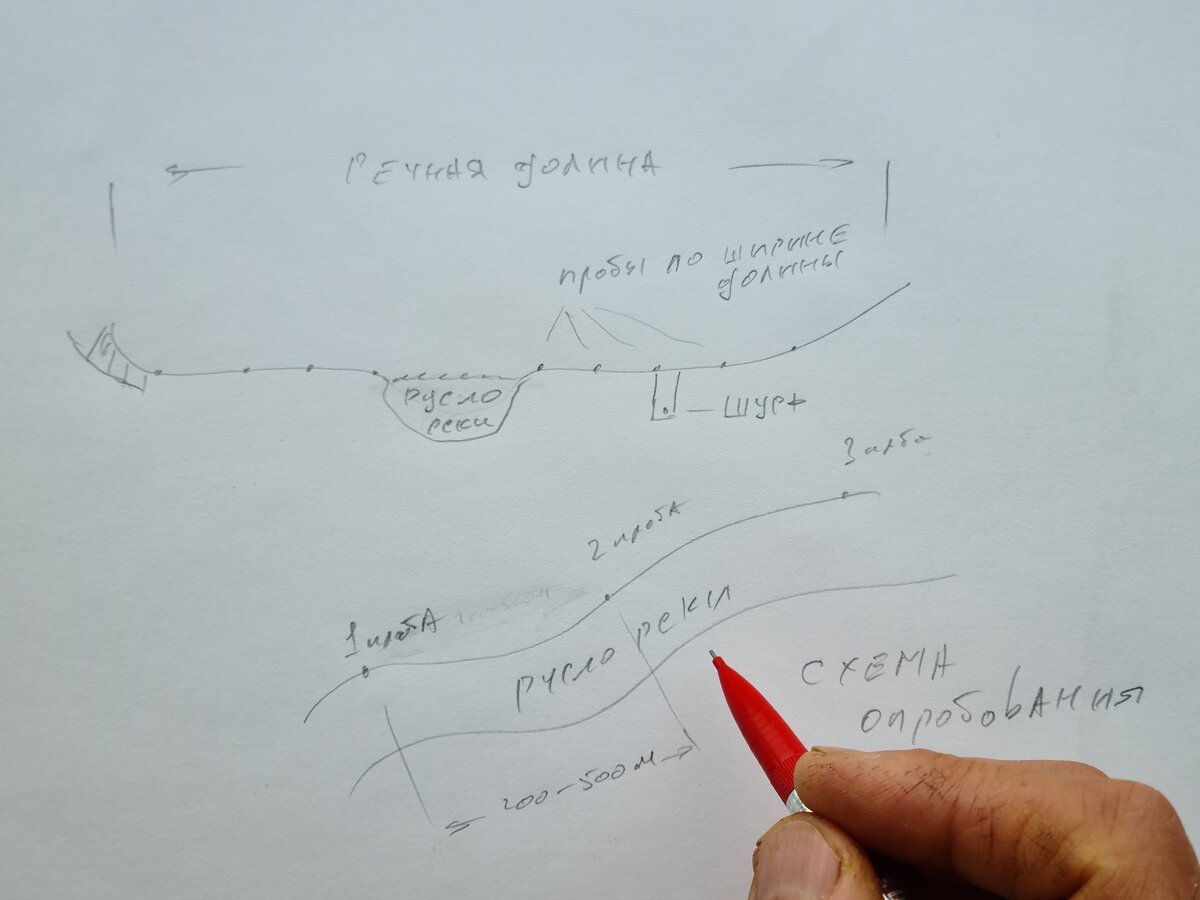 РЕЧНАЯ ДОЛИНА
пробы по ШИРИНЕ
ДОЛИНЫ
РУСЛО
РЕКИ
ШУРФ
3 проба
2 проба
1 проба
РУСЛО РЕКИ
СХЕМА
опробования
200-500 м